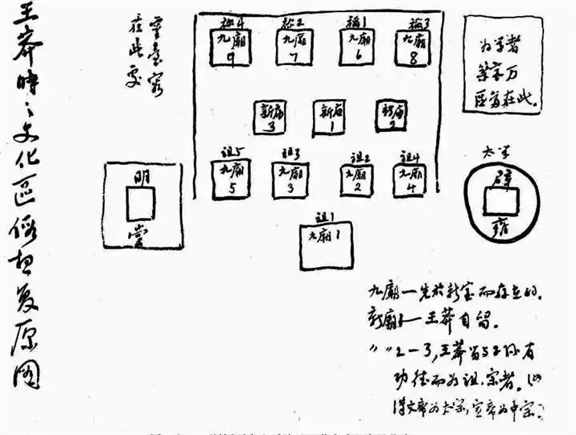 王莽時之文化區假想复原圖
靈臺當
在此處
祧4
祧2
祧1
祧3
九廟
9
九廟
7
九廟
6
九廟
8
新廟
3
新廟
1
新廟
2
祖5
祖3
祖2
祖4
九廟
5
九廟
3
九廟
2
九廟
4
祖1
九廟1
明
堂
为学者
築室万
區當在此。
太学
辟
雍
九廟—先於新室而存在的。
新廟1—王莽自留。
〃〃2—3,王莽
功德而为祖、宗者。